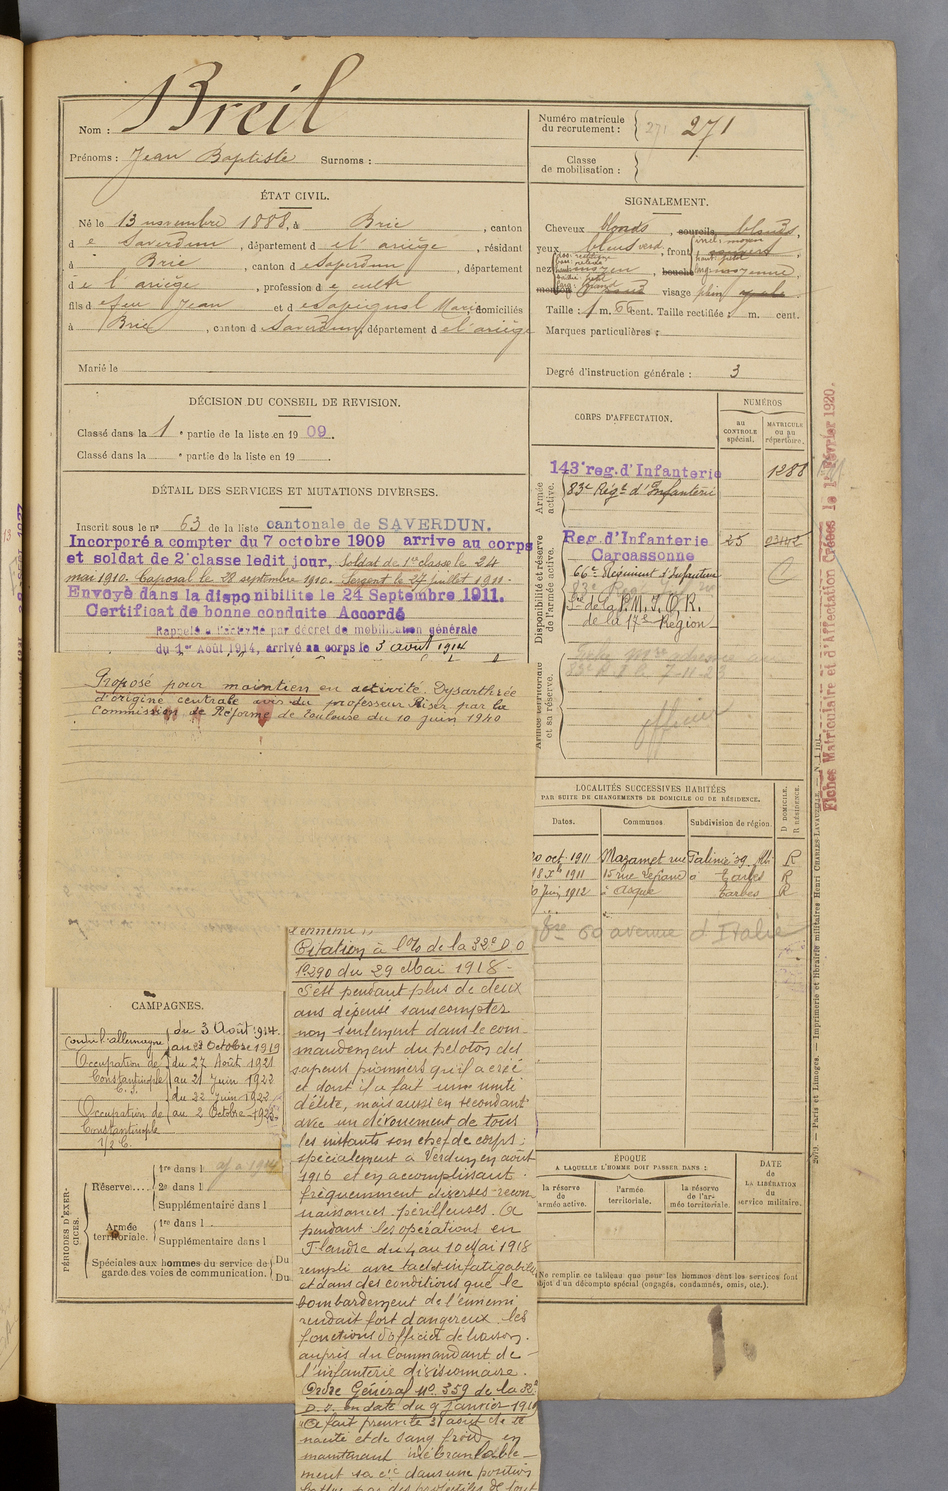 Nom : Breil
Prénoms : Jean Baptiste Surnoms :
Numéro matricule du recrutement : 271 271
Classe de mobilisation :
ÉTAT CIVIL.
Né le 13 novembre 1888, à Brie, canton
de Saverdun, département de l'ariège, résidant
à Brie, canton de Saverdun, département
de l'ariège, profession de cultr
fils de feu Jean et de Sapignol Marie, domiciliés
à Brie, canton de Saverdun, département de l'ariège
Marié le
SIGNALEMENT.
Cheveux blonds, sourcils blonds,
yeux bleus verd, front
nez moyen, bouche moyenne,
menton visage plein
Taille : 1 m. 66 cent. Taille rectifiée : m. cent.
Marques particulières :
Degré d'instruction générale : 3
DÉCISION DU CONSEIL DE REVISION.
Classé dans la 1e partie de la liste en 1909.
Classé dans la e partie de la liste en 19
DÉTAIL DES SERVICES ET MUTATIONS DIVERSES.
Inscrit sous le n° 63 de la liste cantonale de SAVERDUN.
Incorporé a compter du 7 octobre 1909 arrive au corps
et soldat de 2e classe ledit jour, Soldat de 1re classe le 24
mai 1910. Caporal le 28 septembre 1910. Sergent le 27 juillet 1911.
Envoyé dans la disponibilité le 24 Septembre 1911.
Certificat de bonne conduite Accordé
Rappelé à l'activité par décret de mobilisation générale
du 1er Août 1914, arrivé au corps le 3 août 1914
Proposé pour maintien en activité. Dysarthrée
d'origine centrale avis du professeur Riser par la
Commission de Réforme de Toulouse du 10 juin 1940
CORPS D'AFFECTATION.
NUMÉROS
au CONTROLE spécial.
MATRICULE ou au répertoire.
Armée active.
143e reg. d'Infanterie 1288
83e Régt d'Infanterie
Disponibilité et réserve de l'armée active.
Reg. d'Infanterie 25
Carcassonne
66e Régiment d'Infanterie
de la P.M.I.O.R.
de la 17e Région
Armée territoriale et sa réserve.
83e R.I. le 7-11-23
officier
Fiches Matriculaire et d'Affectation Créées le 1er Février 1920.
LOCALITÉS SUCCESSIVES HABITÉES
PAR SUITE DE CHANGEMENTS DE DOMICILE OU DE RÉSIDENCE.
Dates. Communes. Subdivision de région. D DOMICILE. R RÉSIDENCE.
oct. 1911 Mazamet rue Galinié 39 Albi R
18 Xbre 1911 15 rue Lefranc à Tarbes R
Juin 1912 à Asque Tarbes R
60 avenue d'Italie
CAMPAGNES.
Contre l'allemagne du 3 Août 1914
au 23 Octobre 1919
Occupation de du 27 Août 1921
Constantinople au 21 Juin 1922
du 22 Juin 1922
Occupation de au 2 Octobre 1923
Constantinople
1/2 C.
Citation à l'O/ de la 32e D.O
no 290 du 29 Mai 1918 -
S'est pendant plus de deux
ans dépensé sans compter
non seulement dans le com-
mandement du peloton des
sapeurs pionniers qu'il a créé
et dont il a fait une unité
d'élite, mais aussi en secondant
avec un dévouement de tous
les instants son chef de corps ;
spécialement à Verdun en août
1916 et en accomplissant
fréquemment diverses recon-
naissances périlleuses. A
pendant les opérations en
Flandre du 4 au 10 Mai 1918
rempli avec tact et infatigable
et dans des conditions que le
bombardement de l'ennemi
rendait fort dangereux les
fonctions d'officier de liaison
auprès du Commandant de
l'infanterie divisionnaire.
Ordre Général No 359 de la 32e
D.I. en date du 9 Janvier 1919
"A fait preuve le 31 août de té
nacité et de sang froid en
maintenant inébranlable-
ment sa cie dans une position
battue par des projectiles de tout
PÉRIODES D'EXERCICES.
Réserve.... 1re dans l
2e dans l
Supplémentaire dans l
Armée territoriale. 1re dans l
Supplémentaire dans l
Spéciales aux hommes du service de garde des voies de communication. Du
Du
ÉPOQUE
A LAQUELLE L'HOMME DOIT PASSER DANS :
la réserve de l'armée active. l'armée territoriale. la réserve de l'armée territoriale.
DATE de LA LIBÉRATION du service militaire.
Ne remplir ce tableau que pour les hommes dont les services font
objet d'un décompte spécial (engagés, condamnés, omis, etc.).
Paris et Limoges. — Imprimerie et librairie militaires Henri CHARLES-LAVAUZELLE.